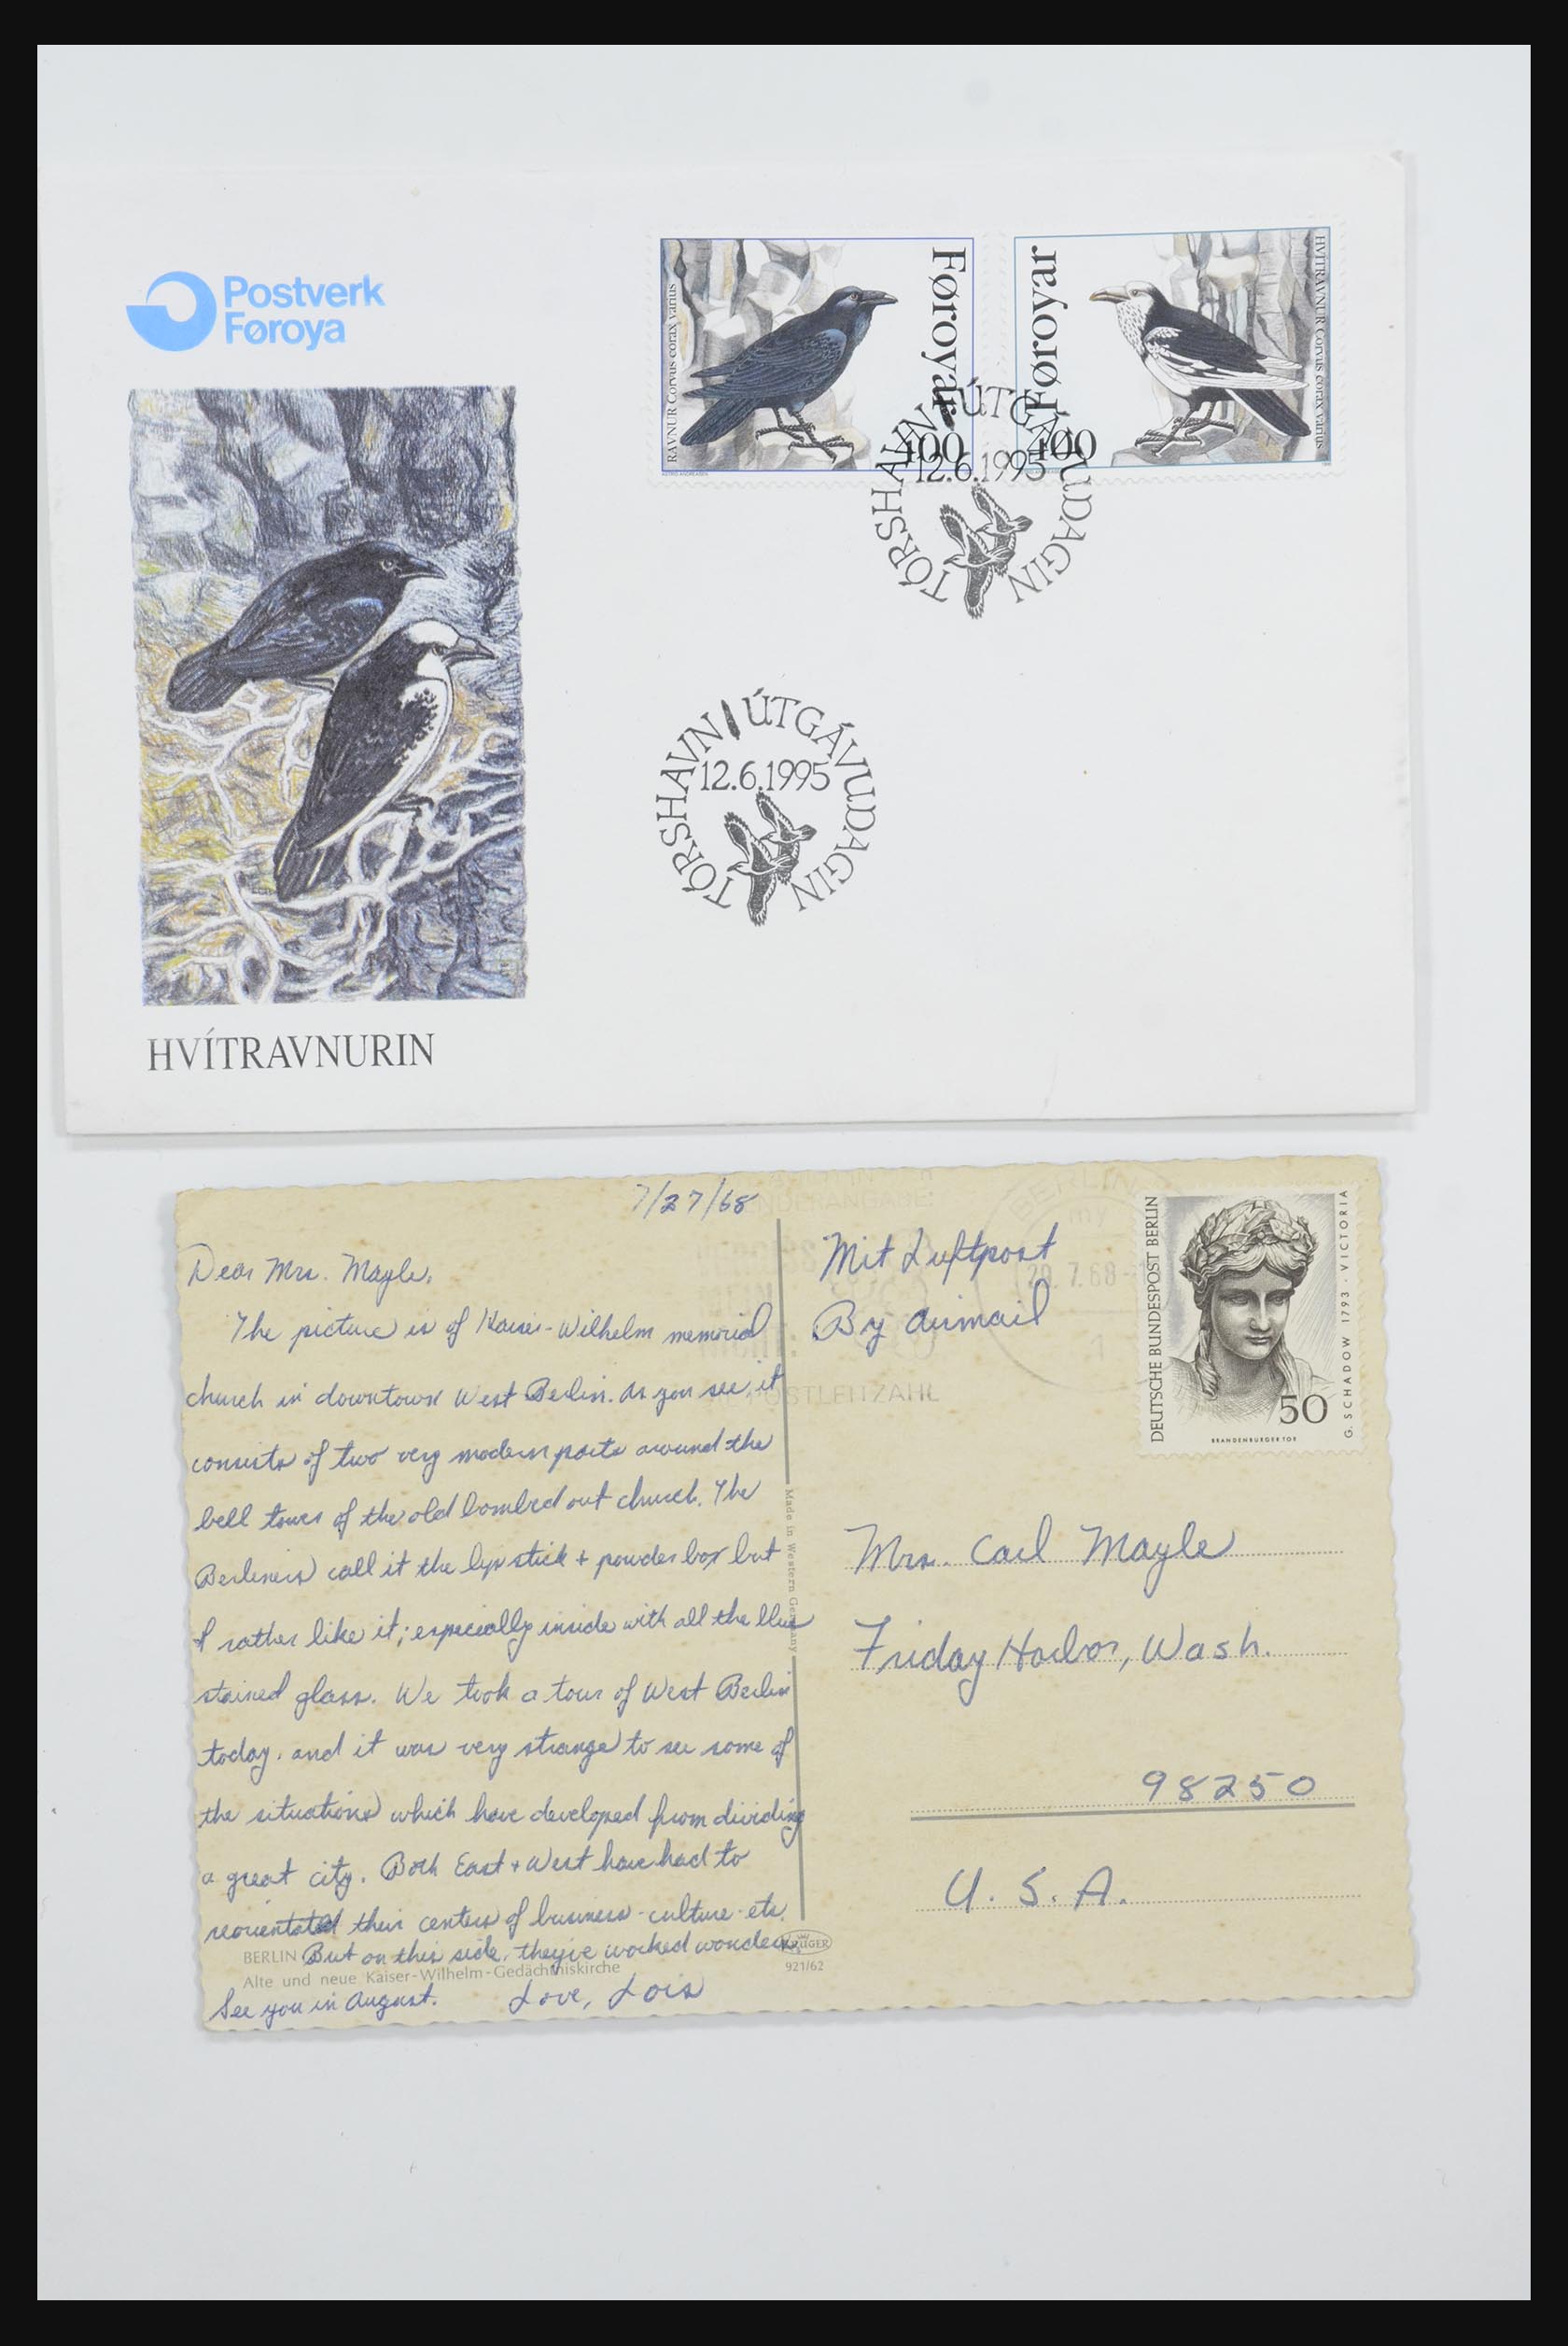 Postverk
Føroya
RAVNUR Corvus corax varius
Føroyar
400
Føroyar
400
HVÍTRAVNUR Corvus corax varius
TÓRSHAVN ÚTGÁVUDAGIN
12.6.1995
TÓRSHAVN ÚTGÁVUDAGIN
12.6.1995
HVÍTRAVNURIN
7/27/68
Dear Mrs. Mayle,
The picture is of Kaiser-Wilhelm memorial
church in downtown West Berlin. As you see, it
consists of two very modern parts around the
bell tower of the old bombed out church. The
Berliners call it the lipstick + powder box but
I rather like it; especially inside with all the blue
stained glass. We took a tour of West Berlin
today, and it was very strange to see some of
the situations which have developed from dividing
a great city. Both East + West have had to
reorientated their centers of business-culture-etc.
But on this side, they've worked wonders.
See you in August. Love, Lois
BERLIN
Alte und neue Kaiser-Wilhelm-Gedächtniskirche
Made in Western Germany
KRÜGER
921/62
Mit Luftpost
By Airmail
BERLIN
29.7.68
1
POSTLEITZAHL
DEUTSCHE BUNDESPOST BERLIN
50
BRANDENBURGER TOR
G. SCHADOW 1793 · VICTORIA
Mrs. Carl Mayle
Friday Harbor, Wash.
98250
U. S. A.